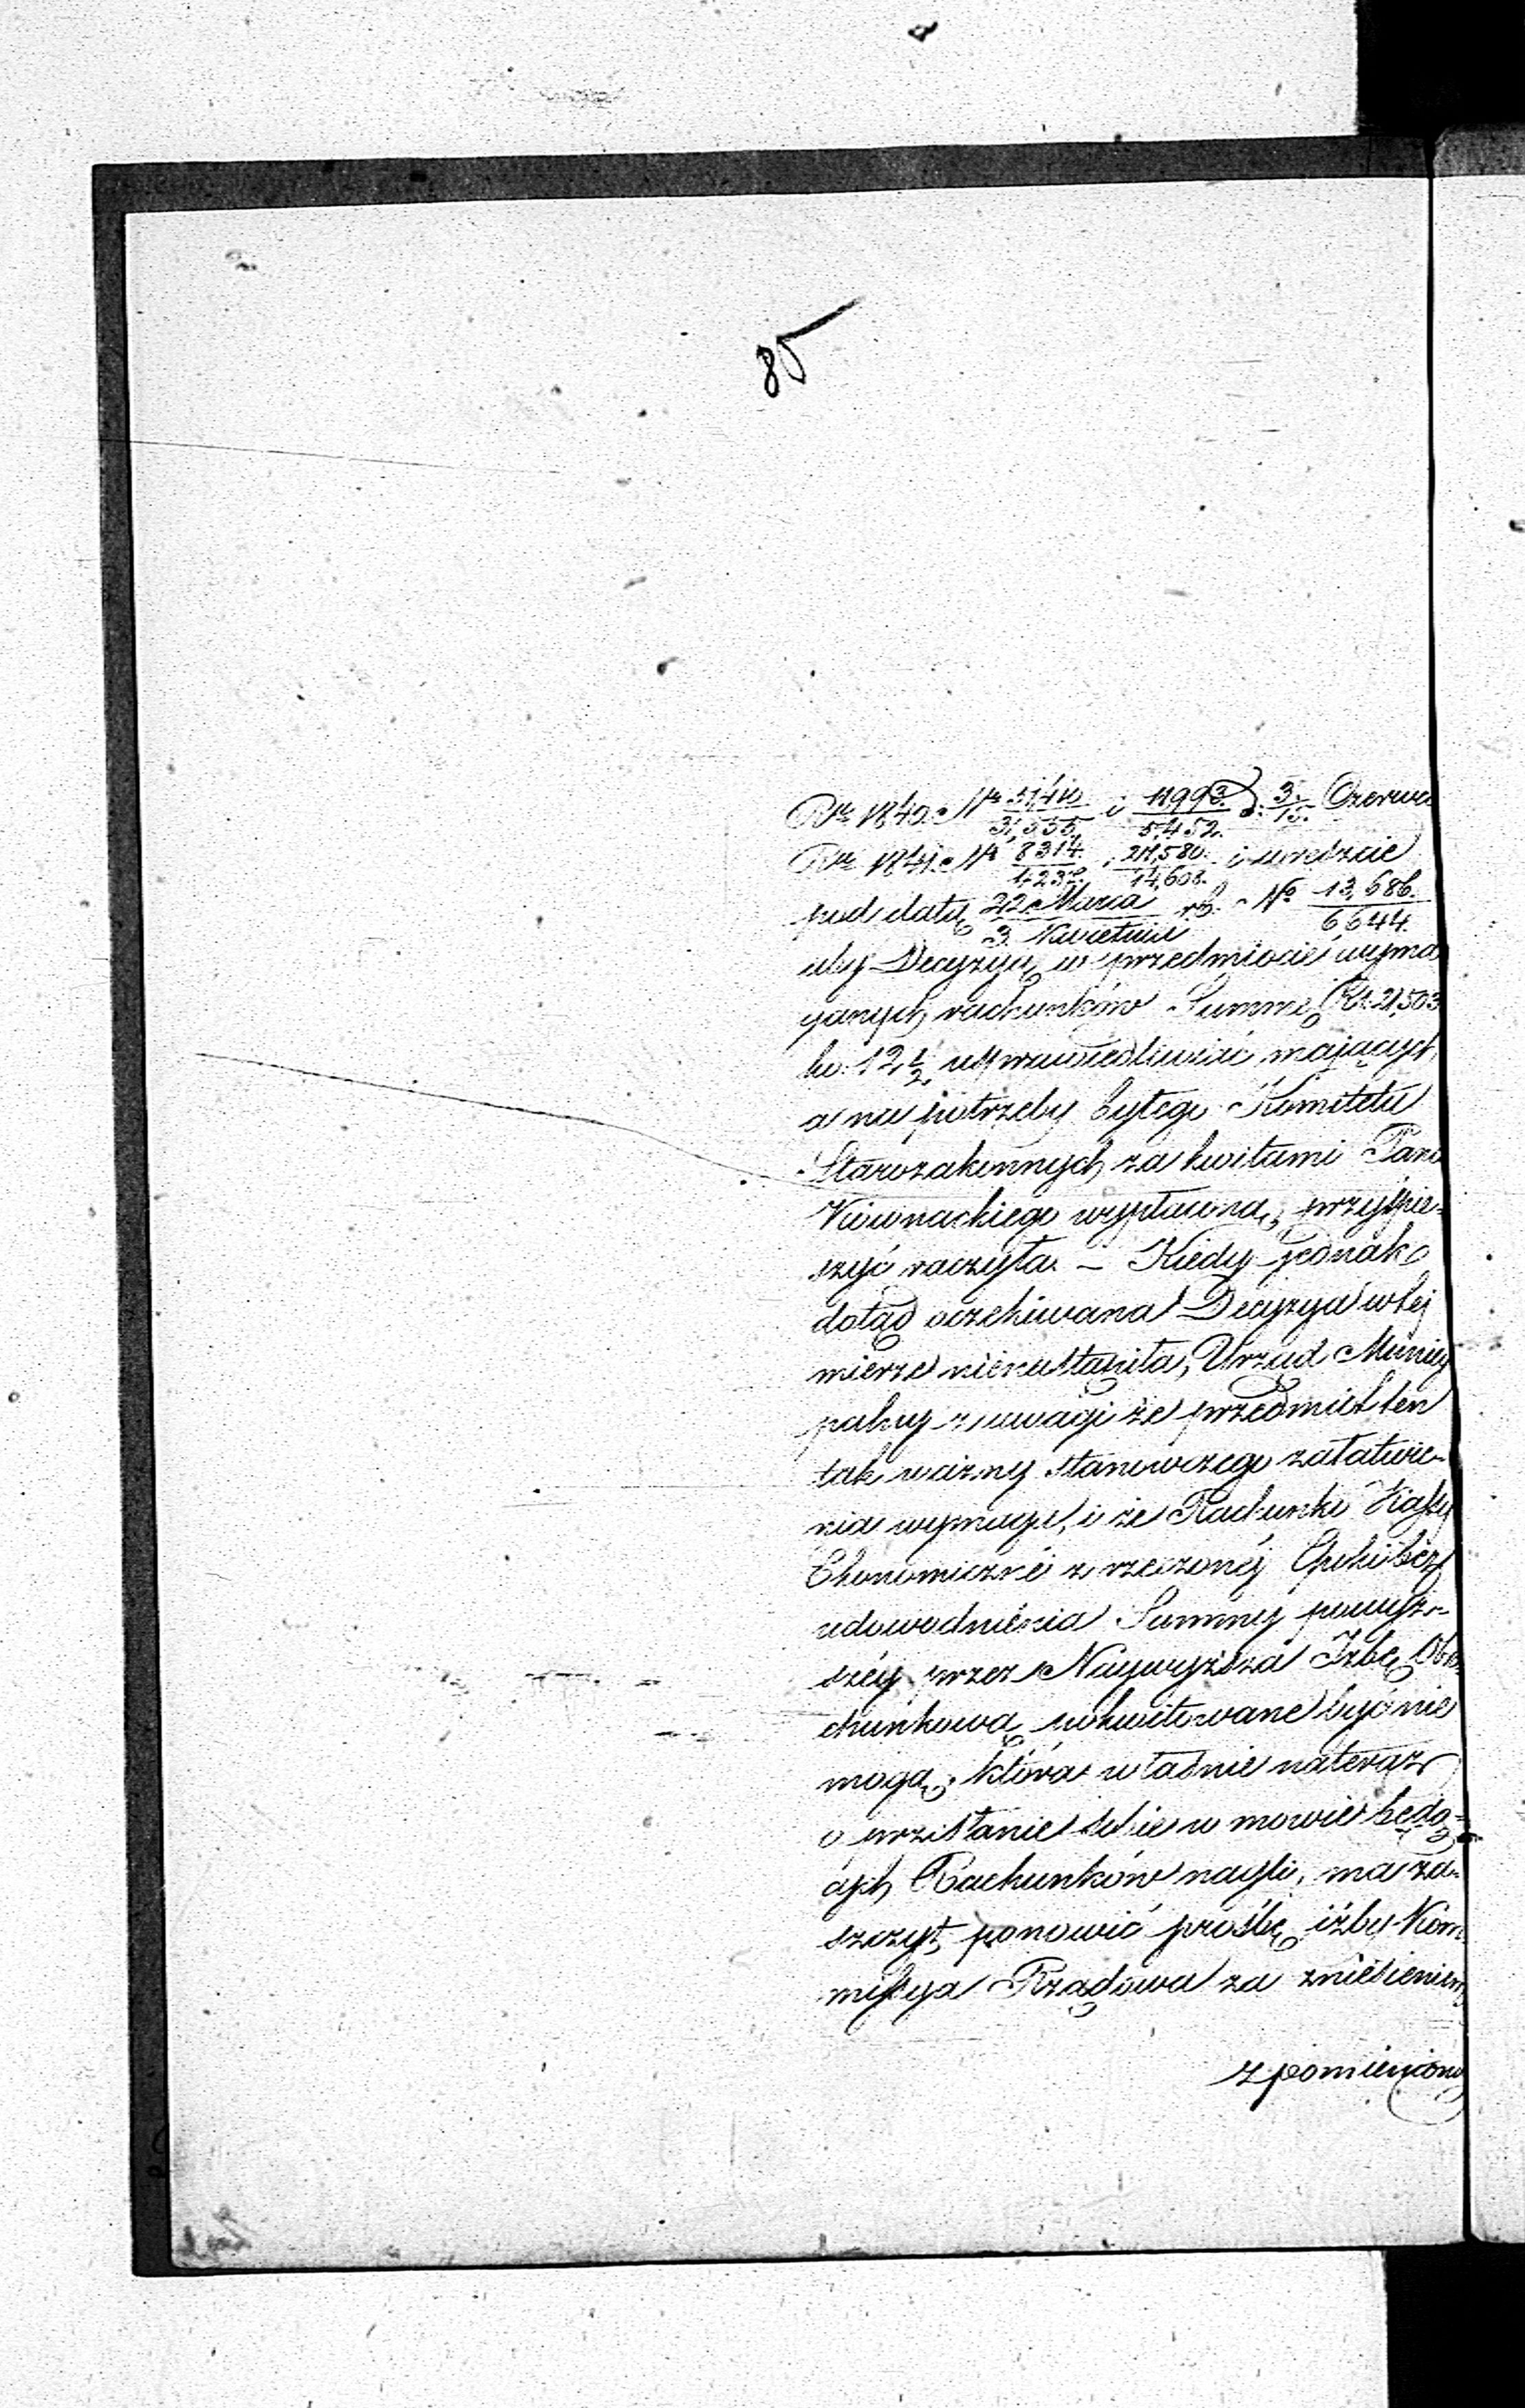 85
Rku 1840. Nr 51,410/31,555. i 11993./5,452. d. 3./15. Czerwca
Rku 1841. Nr 8314./1,232. 211,580./14,608. i wreszcie
pod datą 22. Marca/3. Kwietnia rb. No 13,686./6,644.
aby Decyzyą w przedmiocie wyma
ganych rachunków Summę Rs. 21,503
ko. 12 1/2, usprawiedliwiać mających
a na potrzeby byłego Komitetu
Starozakonnych za kwitami Pana
Kiwnackiego wypłaconą, przyśpie-
szyć raczyła. – Kiedy jednak
dotąd oczekiwana Decyzya w tej
mierze nienastąpiła, Urząd Municy
palny z uwagi że przedmiot ten
tak ważny stanowczego załatwie-
nia wymaga, i że Rachunki Kassy
Ekonomicznéj z rzeczonéj Epoki bez
udowodnienia Summy powyż-
széy przez Naywyższą Izbę Obra
chunkową pokwitowane być nie
mogą, która właśnie nateraz
o przesłanie sobie w mowie będą-
cych Rachunków nagli, ma za-
szczyt ponowić prośbę iżby Kom
missya Rządowa za zniesieniem
z pomienioną